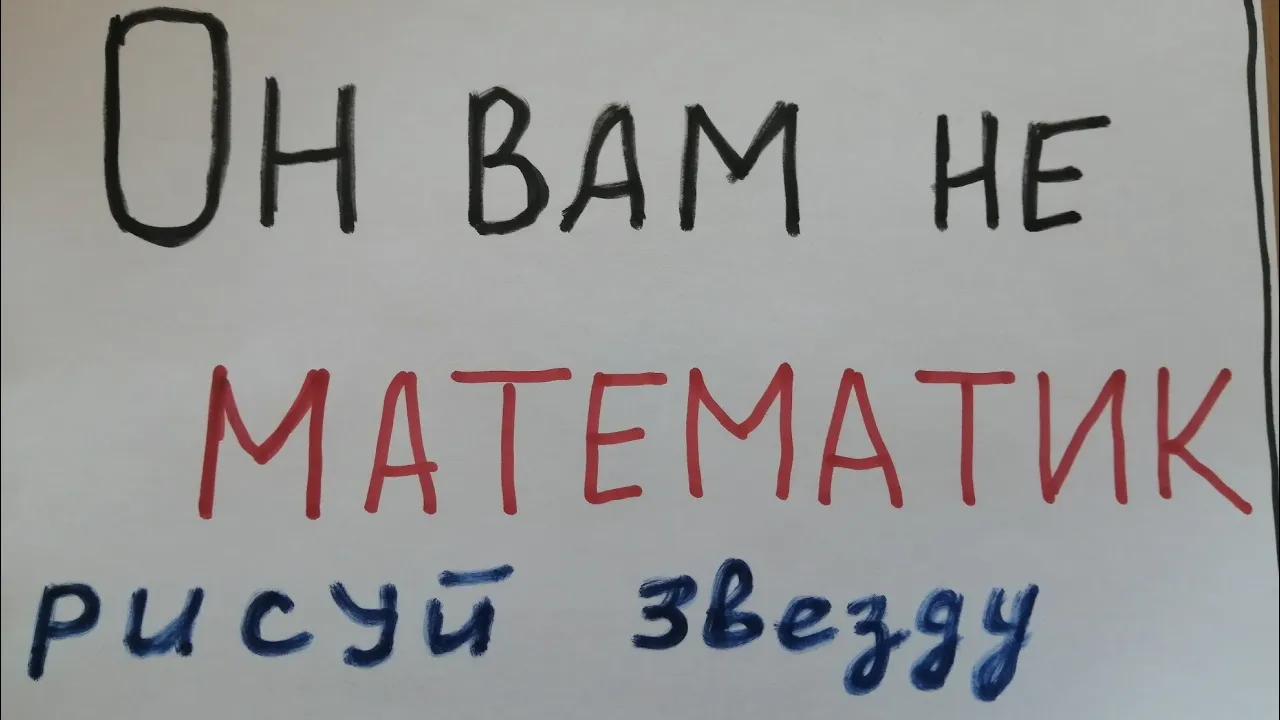 Он вам не
МАТЕМАТИК
рисуй звезду